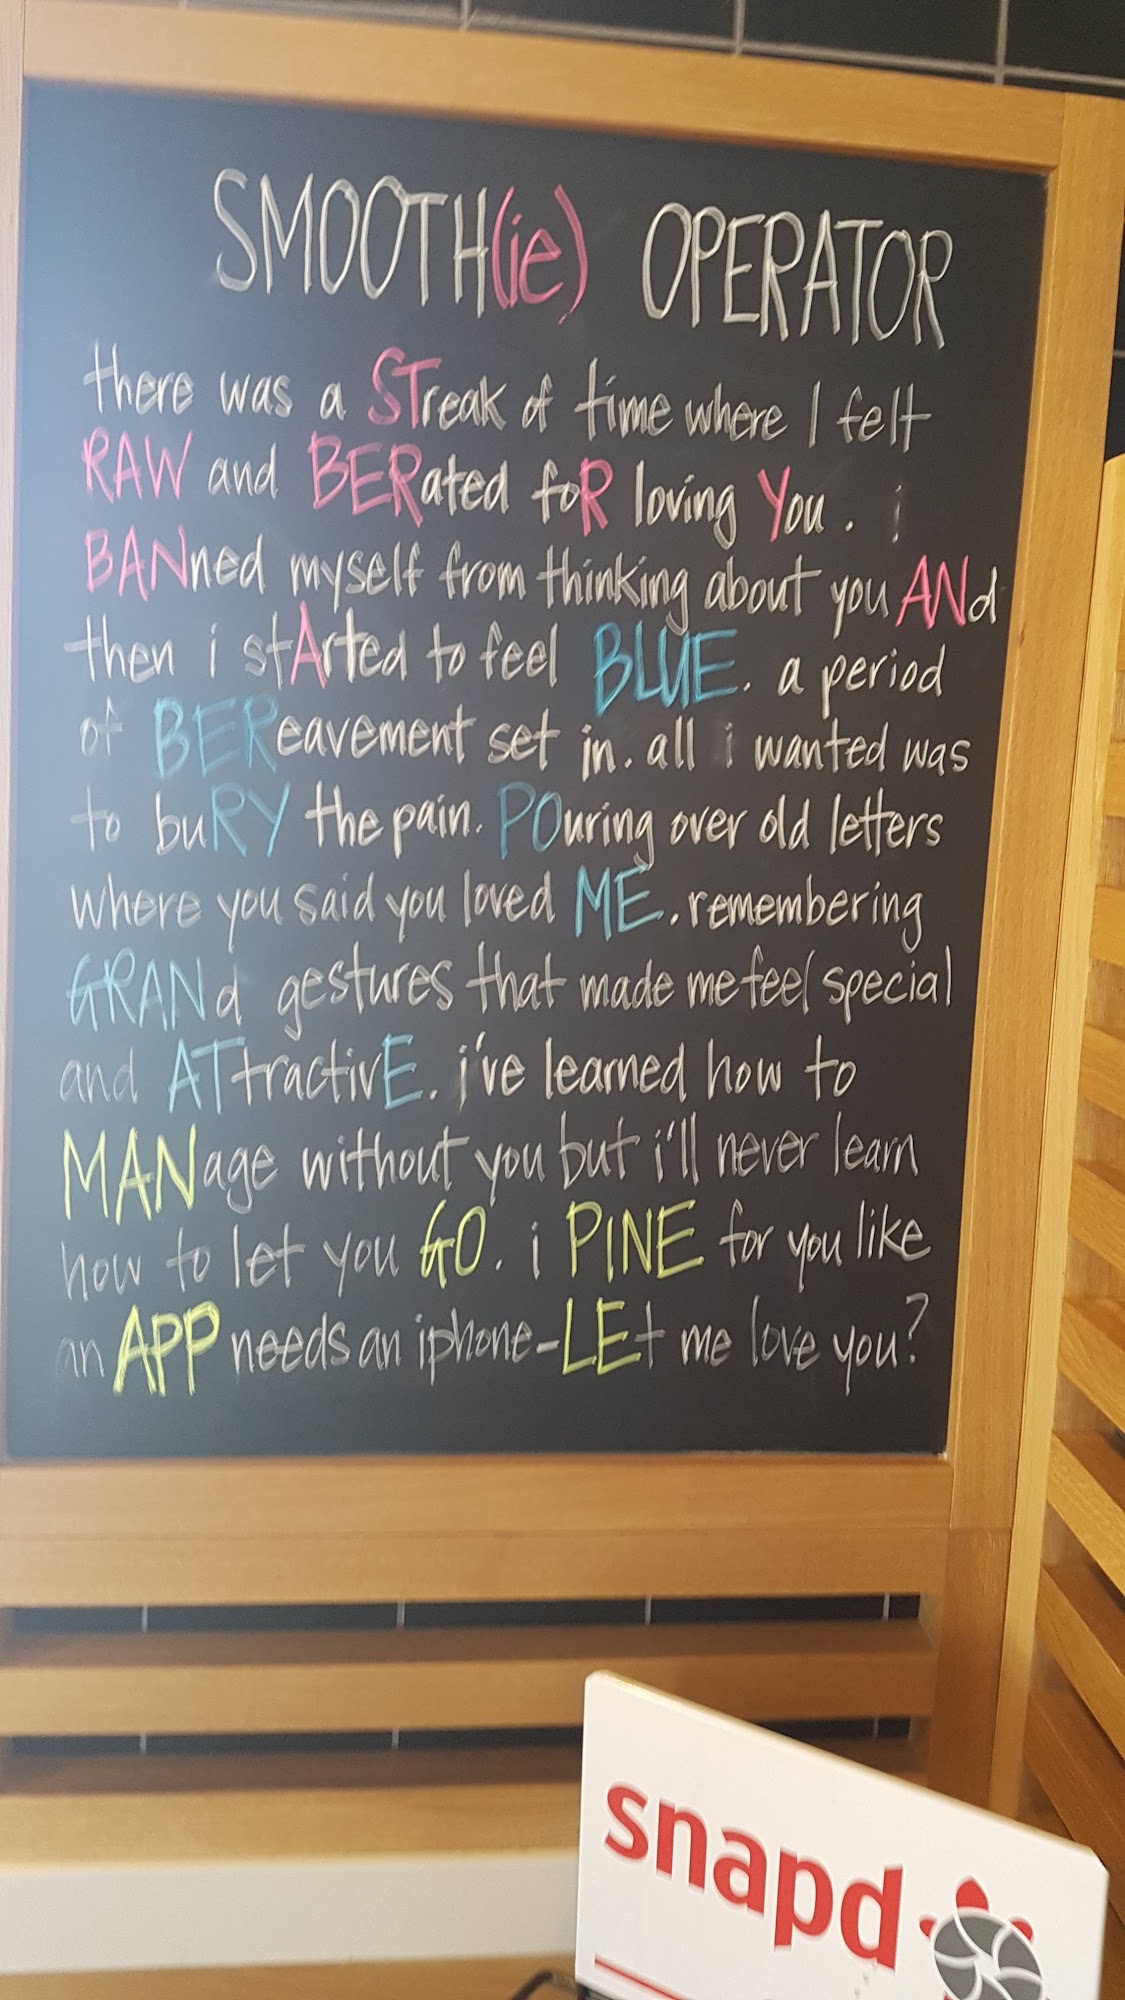 SMOOTH(ie) OPERATOR
there was a STreak of time where I felt
RAW and BERated foR loving You. i
BANned myself from thinking about you ANd
then i stArted to feel BLUE. a period
of BEReavement set in. all i wanted was
to buRY the pain. POuring over old letters
where you said you loved ME. remembering
GRANd gestures that made me feel special
and ATtractivE. i've learned how to
MANage without you but i'll never learn
how to let you GO. i PINE for you like
an APP needs an iphone-LEt me love you?
snapd